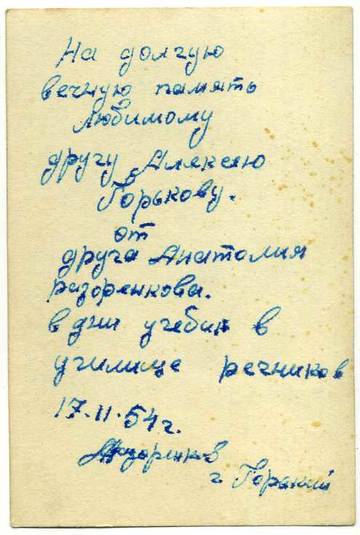 На долгую
вечную память
любимому
другу Алексею
Горькову.
от
друга Анатолия
разоренкова.
в дни учебы в
училище речников
17.11.54г.
г. Горький